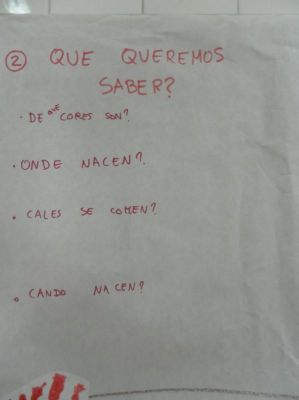 ② QUE QUEREMOS
SABER?
· DE QUE CORES SON?
· ONDE NACEN?
· CALES SE COMEN?
· CANDO NACEN?